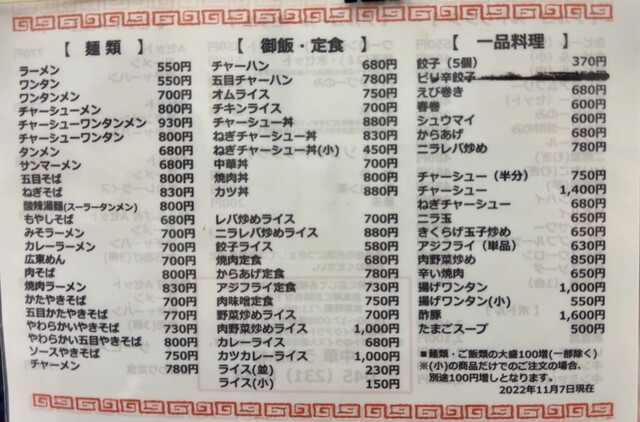 【 麺 類 】
ラーメン 550円
ワンタン 550円
ワンタンメン 700円
チャーシューメン 800円
チャーシューワンタンメン 930円
チャーシューワンタン 800円
タンメン 680円
サンマーメン 680円
五目そば 800円
ねぎそば 830円
酸辣湯麺(スーラータンメン) 800円
もやしそば 680円
みそラーメン 700円
カレーラーメン 700円
広東めん 700円
肉そば 800円
焼肉ラーメン 830円
かたやきそば 700円
五目かたやきそば 770円
やわらかいやきそば 730円
やわらかい五目やきそば 800円
ソースやきそば 750円
チャーメン 780円
【 御飯・定食 】
チャーハン 680円
五目チャーハン 780円
オムライス 750円
チキンライス 700円
チャーシュー丼 880円
ねぎチャーシュー丼 830円
ねぎチャーシュー丼(小) 450円
中華丼 700円
焼肉丼 800円
カツ丼 880円
レバ炒めライス 700円
ニラレバ炒めライス 880円
餃子ライス 580円
焼肉定食 680円
からあげ定食 780円
アジフライ定食 730円
肉味噌定食 750円
野菜炒めライス 700円
肉野菜炒めライス 1,000円
カレーライス 680円
カツカレーライス 1,000円
ライス(並) 230円
ライス(小) 150円
【 一品料理 】
餃子（5個） 370円
ピリ辛餃子
えび巻き 680円
春巻 600円
シュウマイ 600円
からあげ 680円
ニラレバ炒め 780円
チャーシュー（半分） 750円
チャーシュー 1,400円
ねぎチャーシュー 680円
ニラ玉 650円
きくらげ玉子炒め 650円
アジフライ（単品） 630円
肉野菜炒め 850円
辛い焼肉 650円
揚げワンタン 1,000円
揚げワンタン(小) 550円
酢豚 1,600円
たまごスープ 500円
■麺類・ご飯類の大盛100増(一部除く)
※(小)の商品だけでのご注文の場合、
別途100円増しとなります。
2022年11月7日現在